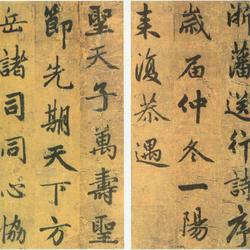 浙藩送行詩序
歲屆仲冬一陽
来復恭遇
聖天子萬壽聖
節先期天下方
岳諸司同心協